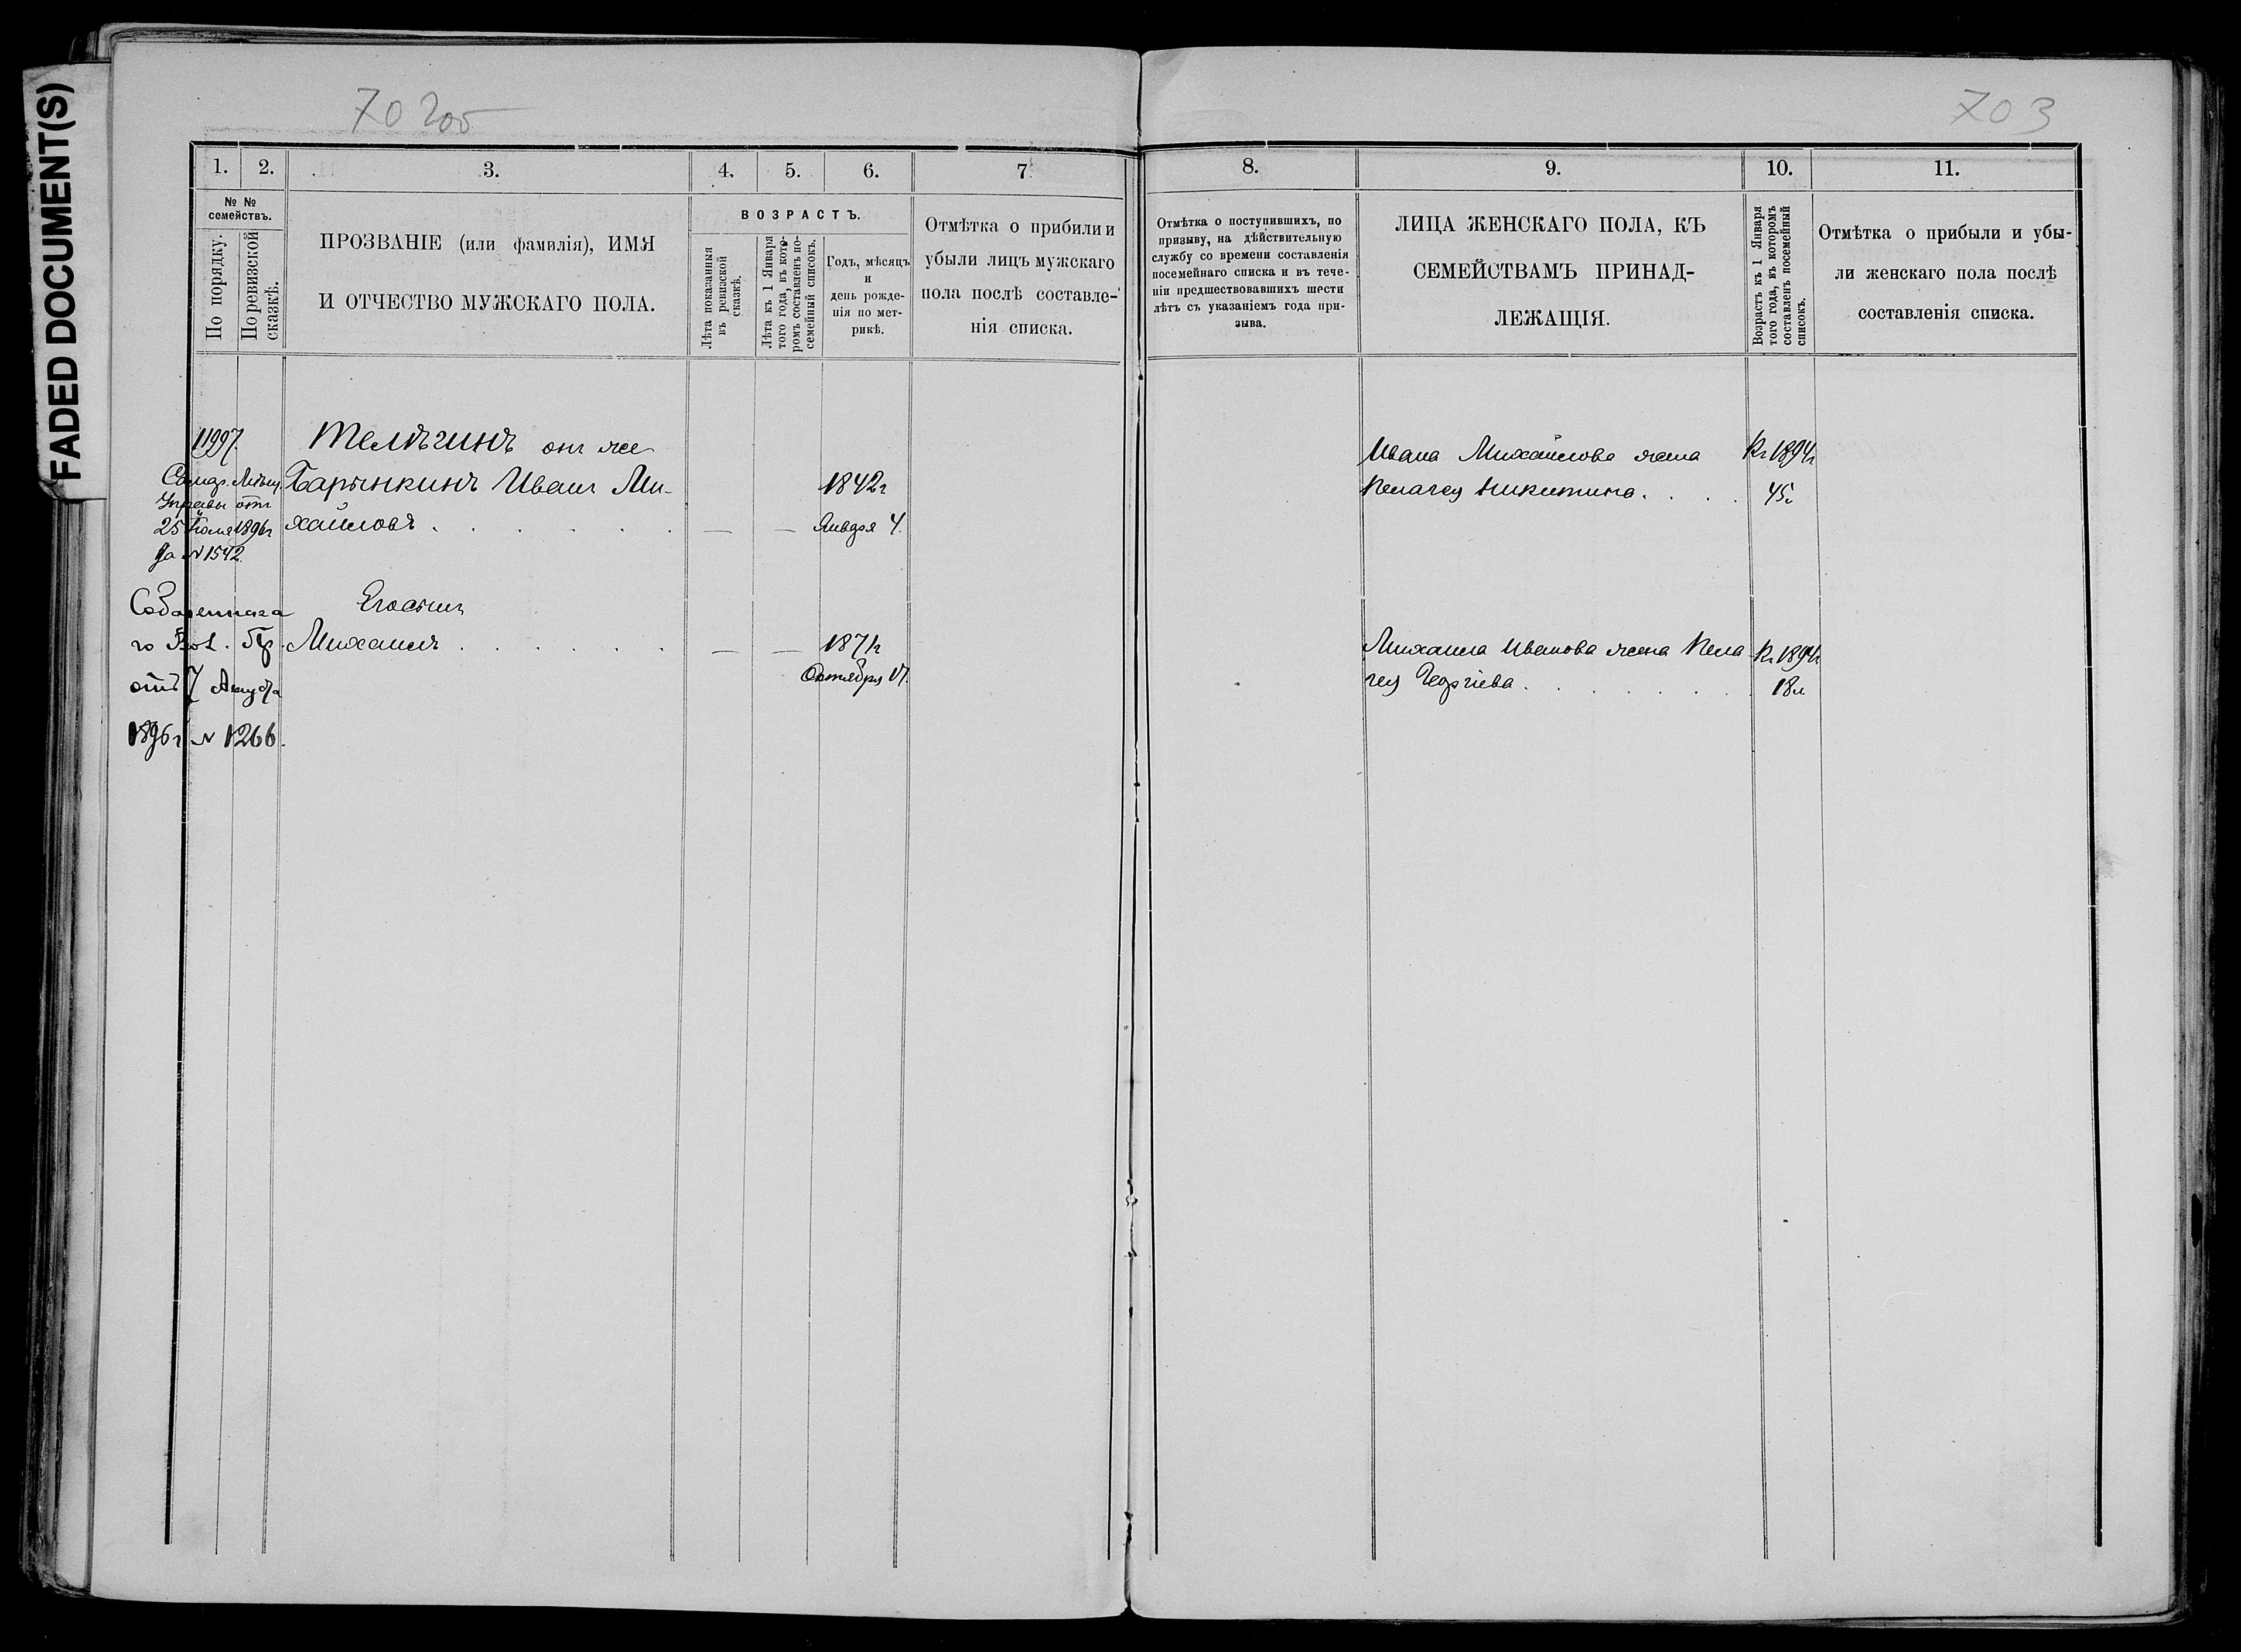 FADED DOCUMENT(S)
70 2об
703
1.
2.
3.
4.
5.
6.
7.
8.
9.
10.
11.
№ №
семействъ.
По порядку.
По ревизской
сказкѣ.
ПРОЗВАНІЕ (или фамилія), ИМЯ
И ОТЧЕСТВО МУЖСКАГО ПОЛА.
ВОЗРАСТЪ.
Лѣта показанныя
въ ревизской
сказкѣ.
Лѣта къ 1 Января
того года, въ кото-
ромъ составленъ по-
семейный списокъ.
Годъ, мѣсяцъ
и
день рожде-
нія по мет-
рикѣ.
Отмѣтка о прибыли и
убыли лицъ мужскаго
пола послѣ составле-
нія списка.
Отмѣтка о поступившихъ, по
призыву, на дѣйствительную
службу со времени составленія
посемейнаго списка и въ тече-
ніи предшествовавшихъ шести
лѣтъ съ указаніемъ года при-
зыва.
ЛИЦА ЖЕНСКАГО ПОЛА, КЪ
СЕМЕЙСТВАМЪ ПРИНАД-
ЛЕЖАЩІЯ.
Возрастъ къ 1 Января
того года, въ которомъ
составленъ посемейный
списокъ.
Отмѣтка о прибыли и убы-
ли женскаго пола послѣ
составленія списка.
1997.
Телѣгинъ онъ же
Самар. Мѣщ.
Управы отъ
25 Іюля 1896г
за № 1542.
Барынкинъ Иванъ Ми-
хайловъ . . . . . . — —
1842г
Января 4.
Ивана Михайлова жена
Пелагея Никитина . . . .
Къ 1894г
45л
го Вол. Пр.
отъ 7 Августа
1896г № 1266.
Его сынъ
Михаилъ . . . . . . — —
1871г
Октября 17.
Михаила Иванова жена Пела-
гея Георгіева . . . . . . .
Къ 1894г
18л